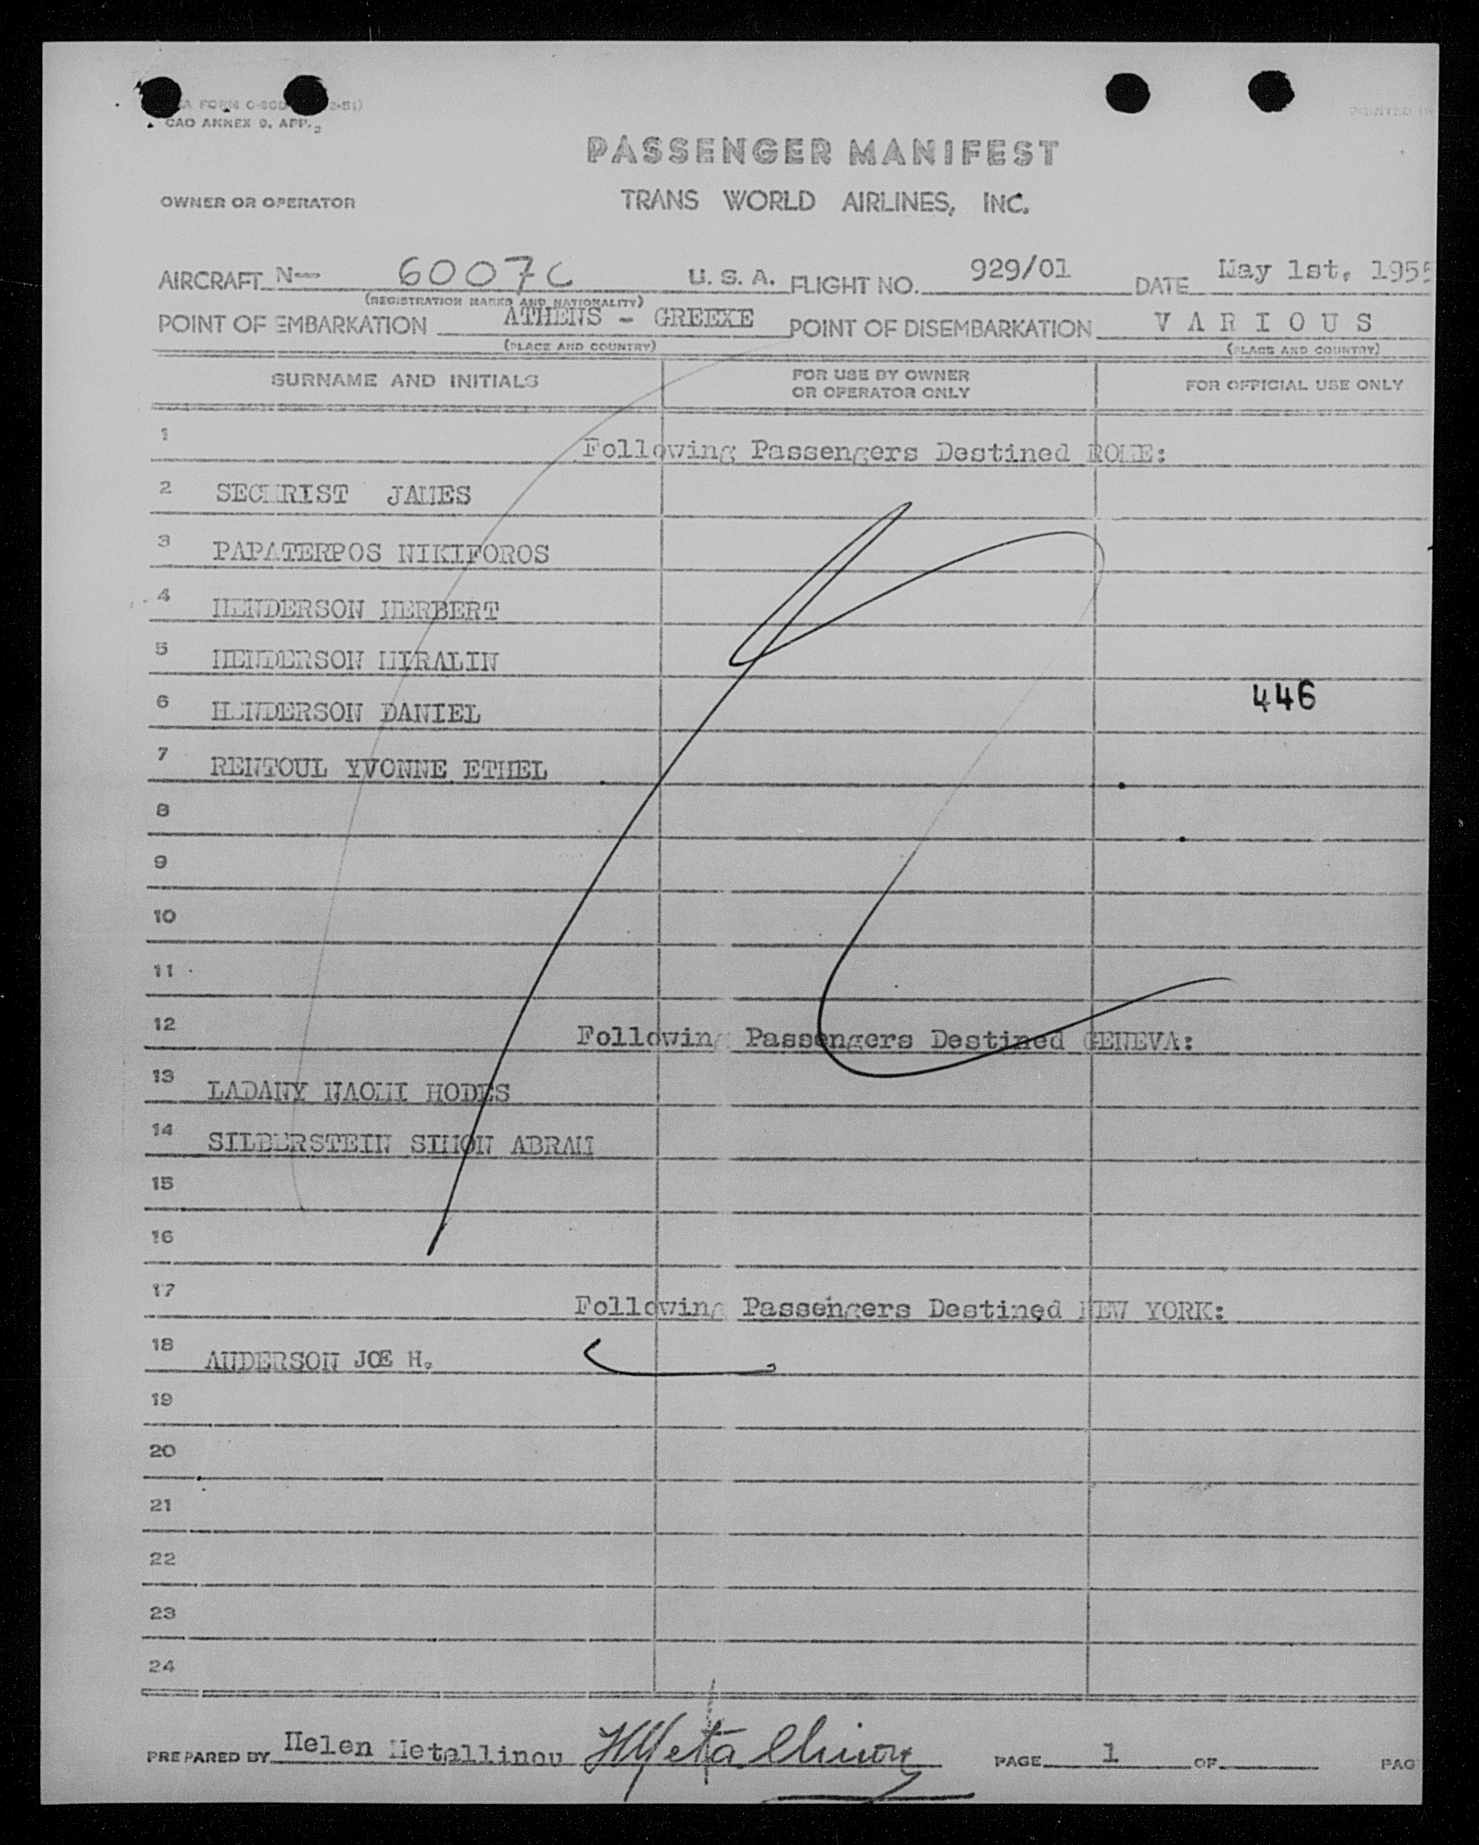 CAO ANNEX 9, APP. 2
PASSENGER MANIFEST
OWNER OR OPERATOR TRANS WORLD AIRLINES, INC.
AIRCRAFT N— 6007C U. S. A. FLIGHT NO. 929/01 DATE May 1st, 1955
(REGISTRATION MARKS AND NATIONALITY)
POINT OF EMBARKATION ATHENS - GREEXE POINT OF DISEMBARKATION V A R I O U S
(PLACE AND COUNTRY) (PLACE AND COUNTRY)
SURNAME AND INITIALS FOR USE BY OWNER OR OPERATOR ONLY FOR OFFICIAL USE ONLY
1 Following Passengers Destined ROME:
2 SECHRIST JAMES
3 PAPATERPOS NIKIFOROS
4 HENDERSON HERBERT
5 HENDERSON MIRALIN
6 HENDERSON DANIEL 446
7 RENTOUL YVONNE ETHEL
8
9
10
11
12 Following Passengers Destined GENEVA:
13 LADANY NAOMI HODES
14 SILBERSTEIN SIMON ABRAM
15
16
17 Following Passengers Destined NEW YORK:
18 ANDERSON JOE H.
19
20
21
22
23
24
PREPARED BY Helen Metallinou HMetallinou PAGE 1 OF PAG